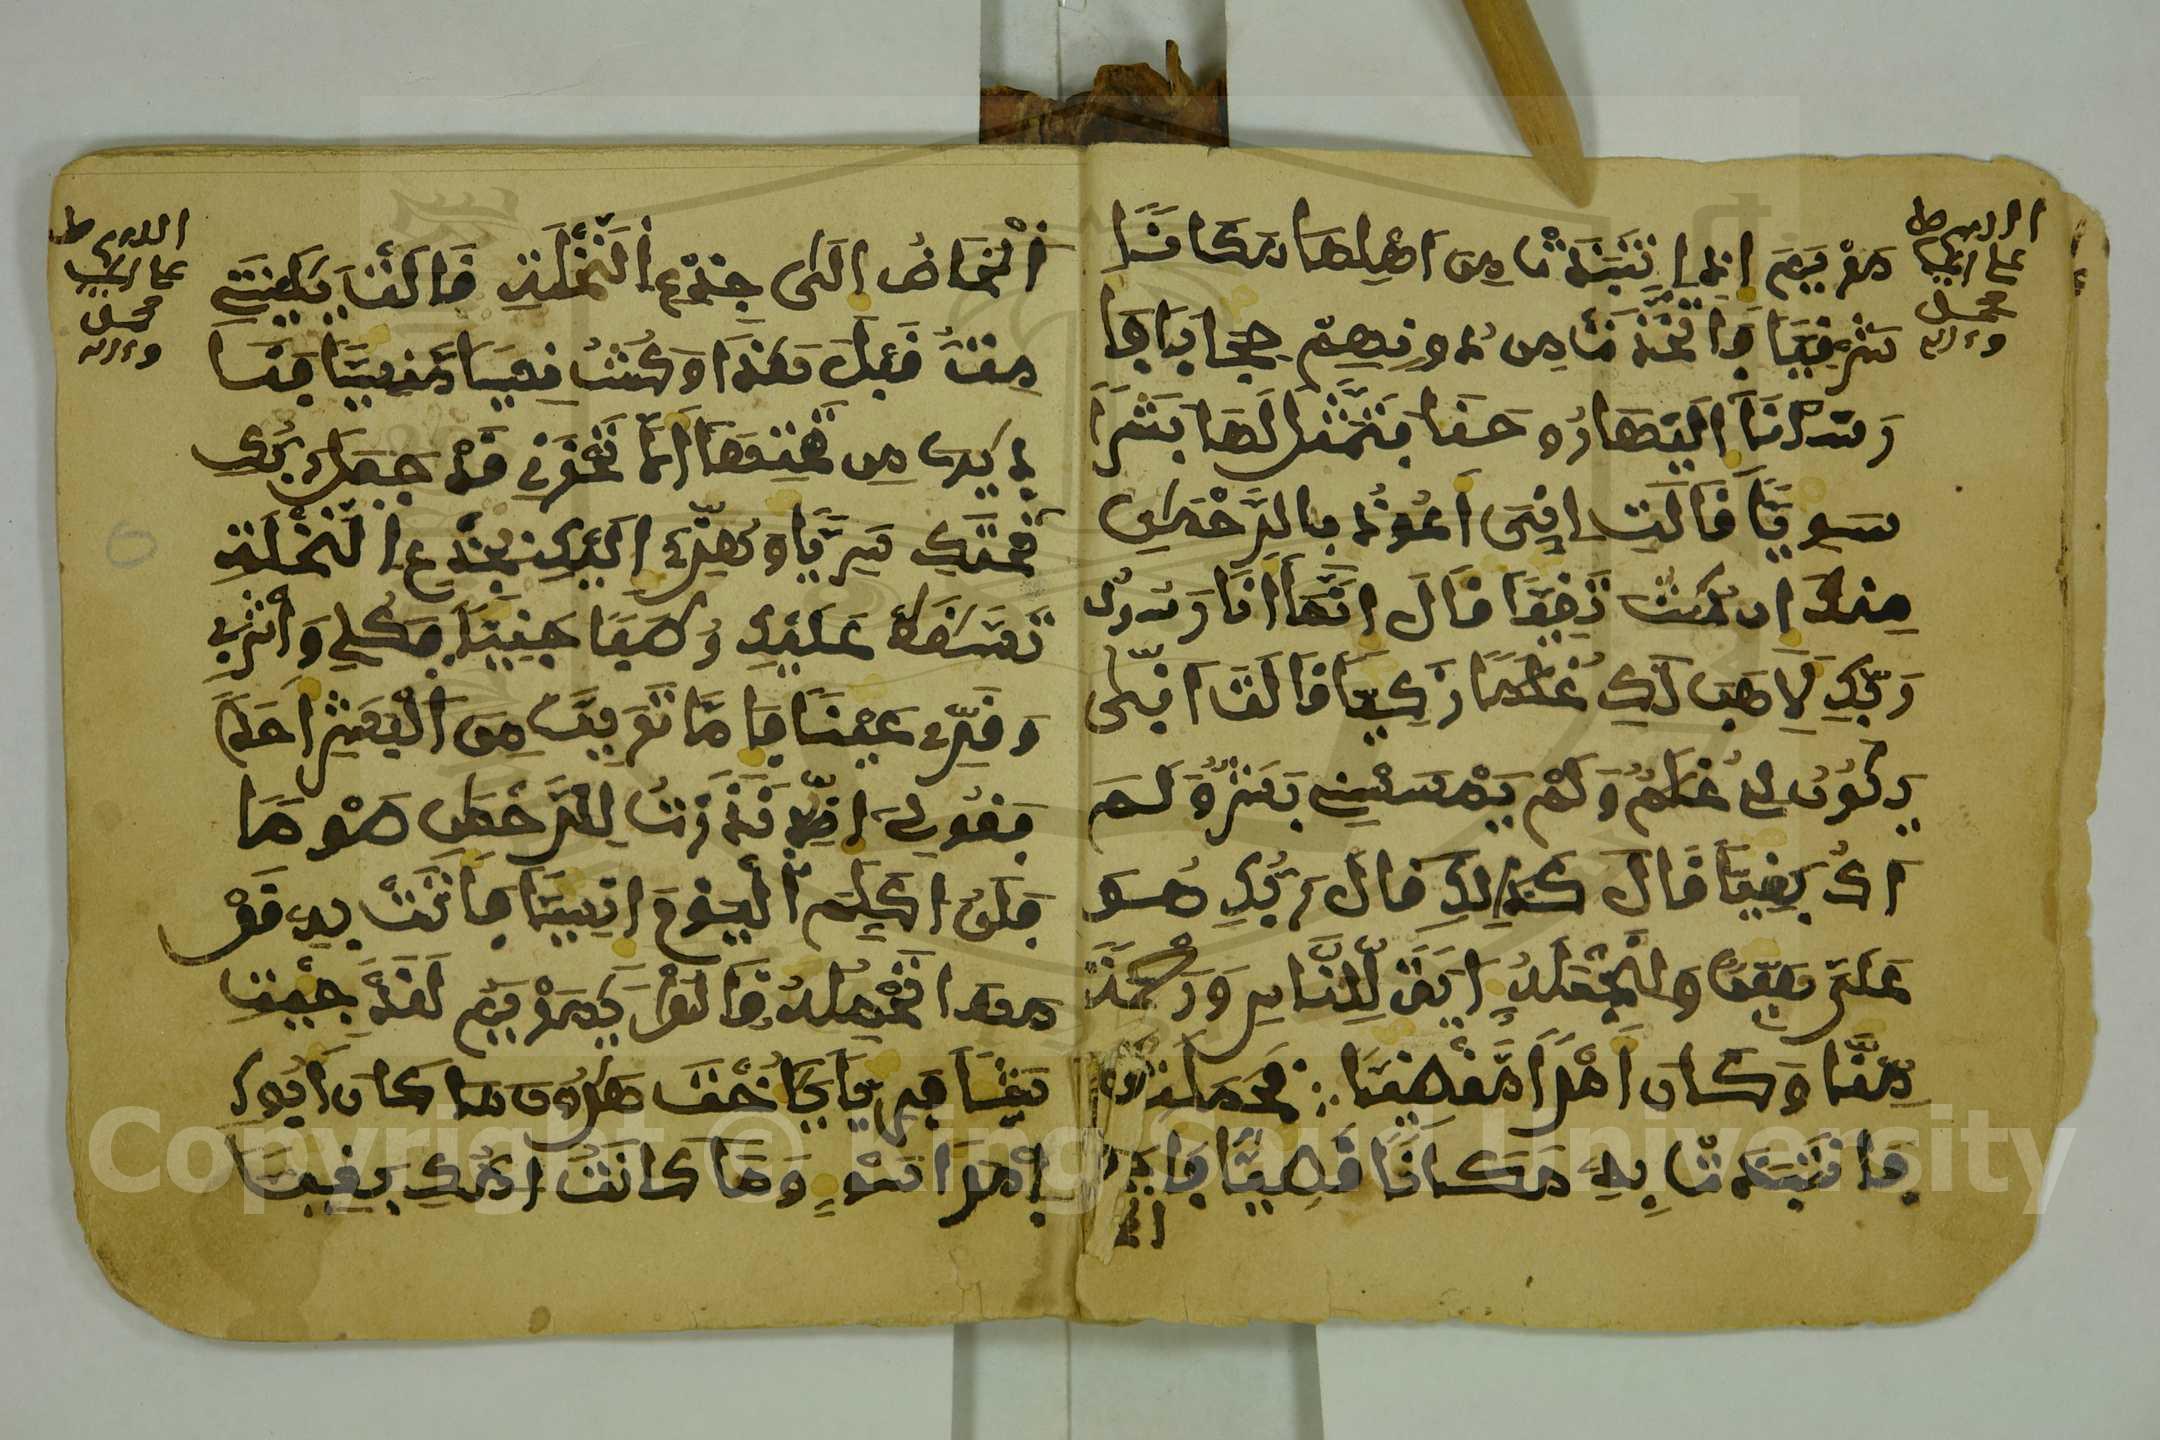 مَرْيَمَ إِذِ اِنتَبَذَتْ مِنَ اَهْلِهَا مَكَانًا
شَرْقِيًّا فَاتَّخَذَتْ مِن دُونِهِمْ حِجَابًا فَا
رْسَلْنَا إِلَيْهَا رُوحَنَا فَتَمَثَّلَ لَهَا بَشَرًا
سَوِيًّا قَالَتِ اِنِّيَ أَعُوذُ بِالرَّحْمَنِ
مِنكَ إِن كُنتَ تَقِيًّا قَالَ إِنَّمَا أَنَا رَسُولُ
رَبِّكِ لِأَهَبَ لَكِ غُلَمًا زَكِيًّا قَالَتَ اَنِّى
يَكُونُ لِي غُلَمٌ وَلَمْ يَمْسَسْنِي بَشَرٌ وَلَمَ
اَكُ بَغِيًّا قَالَ كَذَلِكِ قَالَ رَبُّكِ هُوَ
عَلَيَّ هَيِّنٌ وَلِنَجْعَلَهُ ءَايَةً لِّلنَّاسِ وَرَحْمَةً
مِّنَّا وَكَانَ أَمْرًا مَّقْضِيًّا فَحَمَلَتْهُ
فَانتَبَذَتْ بِهِ مَكَانًا قَصِيًّا فَأَ
اَلْمَخَاضُ إِلَى جِذْعِ اِلنَّخْلَةِ قَالَتْ يَلَيْتَنِي
مِتُّ قَبْلَ هَذَا وَكُنتُ نِسْيًا مَّنسِيًّا فَنَا
دَيهَا مِن تَحْتِهَا أَلَّا تَحْزَنِي قَدْ جَعَلَ رَبُّكِ
تَحْتَكِ سَرِيًّا وَهُزِّي إِلَيْكِ بِجِذْعِ اِلنَّخْلَةِ
تَسَّقَطْ عَلَيْكِ رُطَبًا جَنِيًّا فَكُلِي وَاشْرَبِ
وَقَرِّي عَيْنًا فَإِمَّا تَرَيِنَّ مِنَ اَلْبَشَرِ أَحَدًا
فَقُولِي إِنِّي نَذَرْتُ لِلرَّحْمَنِ صَوْمًا
فَلَنُ اكَلِّمَ اَلْيَوْمَ إِنسِيًّا فَأَتَتْ بِهِ قَوْ
مَهَا تَحْمِلُهُ قَالُوا يَمَرْيَمُ لَقَدْ جِئْتِ
شَيْئًا فَرِيًّا يَأُخْتَ هَرُونَ مَا كَانَ أَبُوكِ
اِمْرَأَ سَوْءٍ وَمَا كَانَتُ امُّكِ بَغِيًّا
Copyright © King Saud University